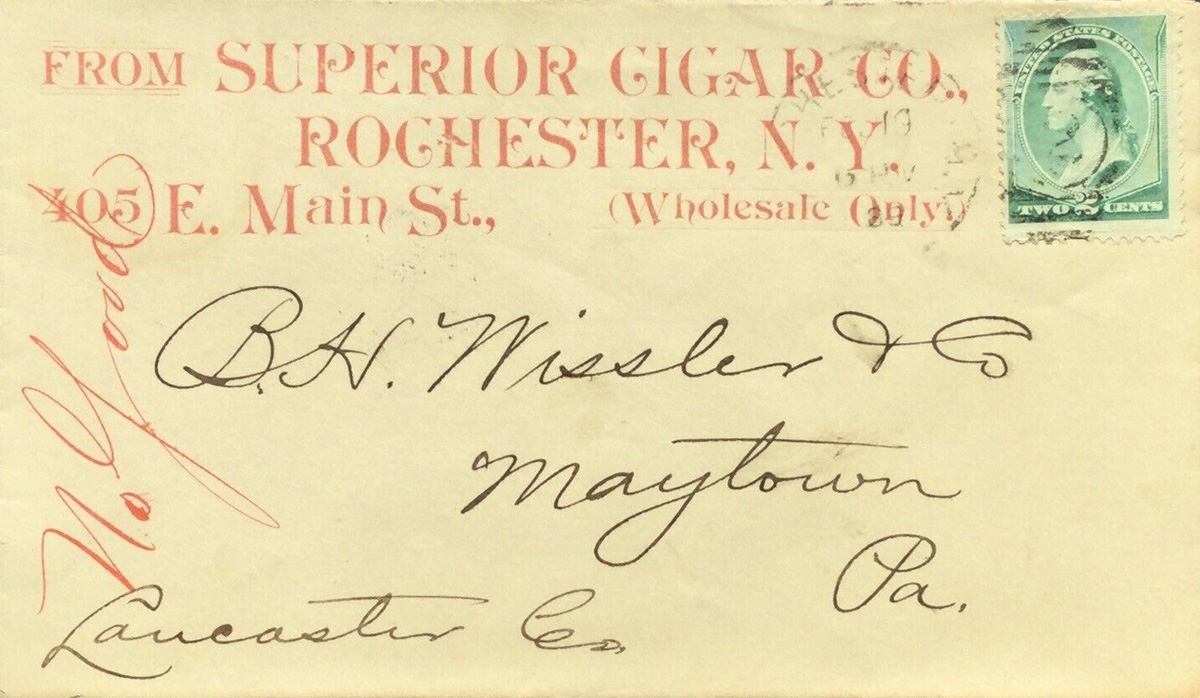 FROM SUPERIOR CIGAR CO.,
ROCHESTER, N. Y.
405 E. Main St., (Wholesale Only.)
FEB 19
89
UNITED STATES POSTAGE
TWO 2 CENTS
No Good
B. H. Wissler & Co
Maytown
Pa.
Lancaster Co.